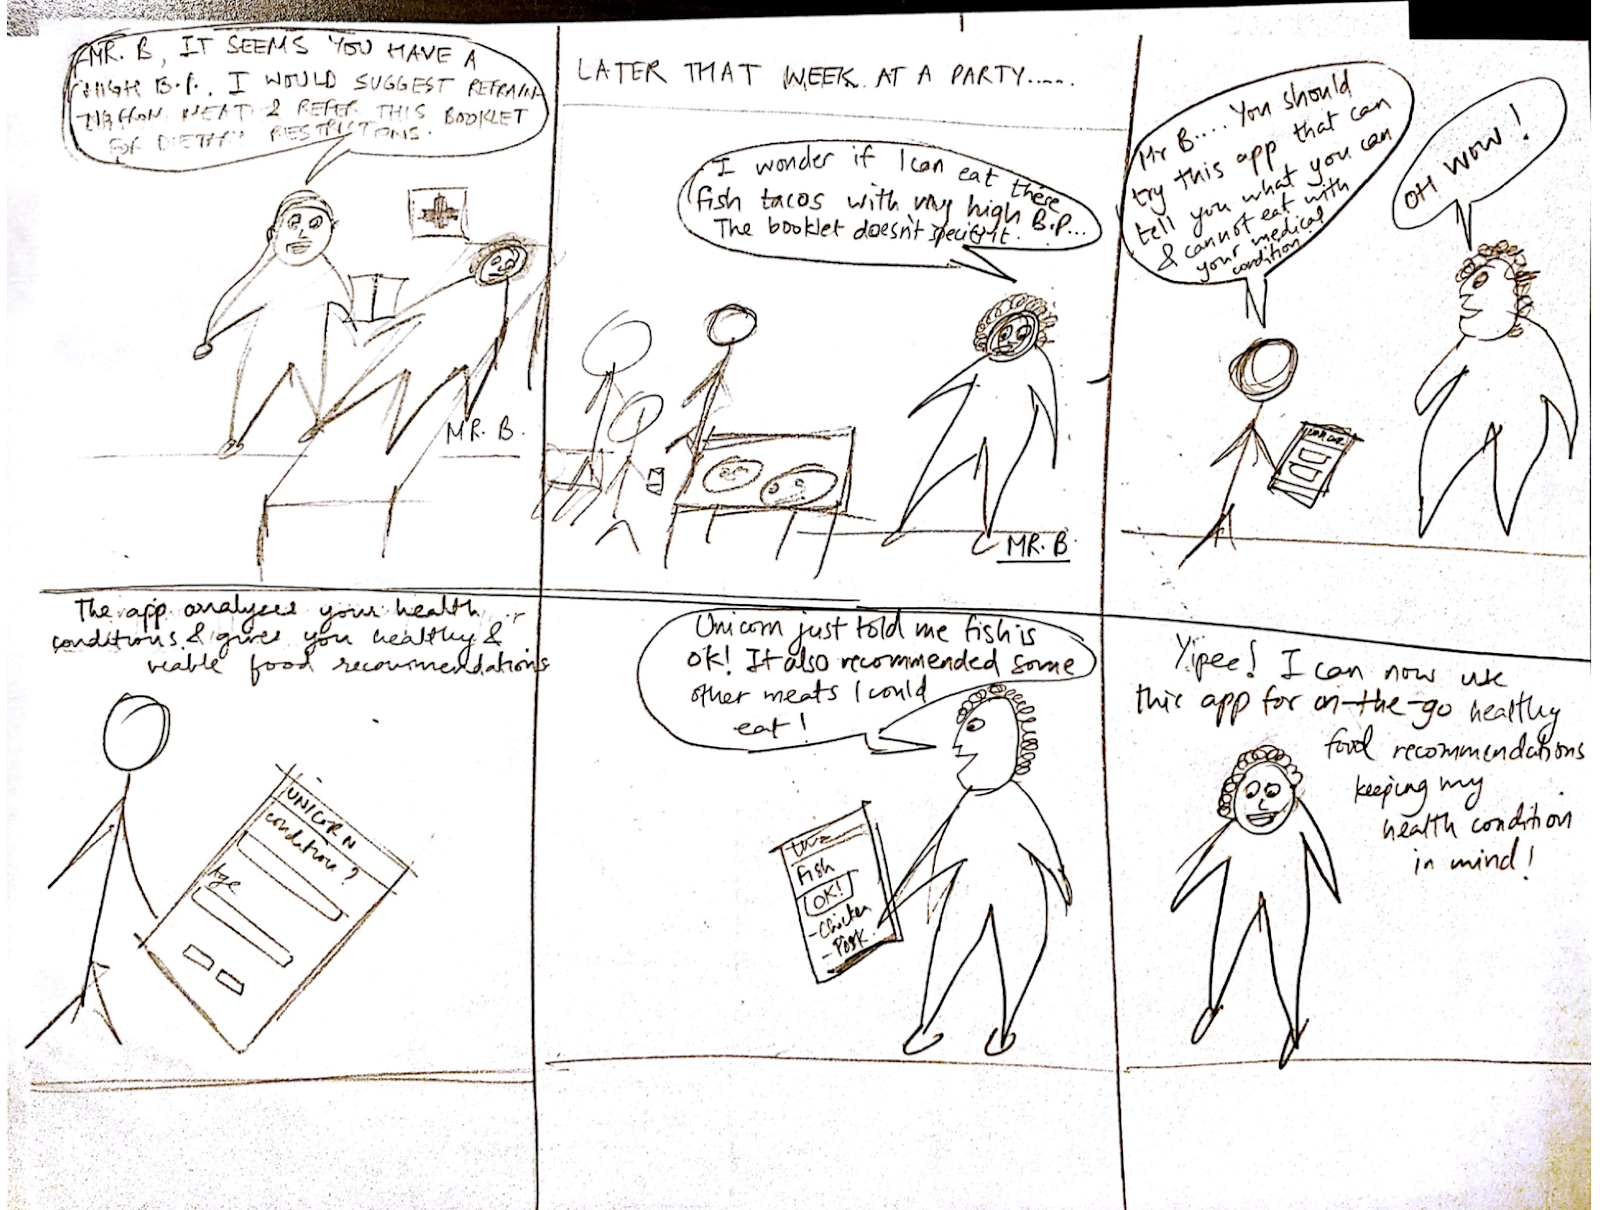 MR. B, IT SEEMS YOU HAVE A
HIGH B.P. I WOULD SUGGEST REFRAIN
MEAT & REFER THIS BOOKLET
FOR DIETARY RESTRICTIONS.
MR. B.
LATER THAT WEEK AT A PARTY.....
I wonder if I can eat these
fish tacos with my high B.P...
The booklet doesn't specify it.
MR. B.
Mr B.... You should
try this app that can
tell you what you can
& cannot eat with
your medical
condition
OH WOW!
UNICORN
The app analyses your health
conditions & gives you healthy &
viable food recommendations
UNICORN
condition?
Age
Unicorn just told me fish is
OK! It also recommended some
other meats I could
eat!
Fish
OK!
- Chicken
- Pork
Yipee! I can now use
this app for on-the-go healthy
food recommendations
keeping my
health condition
in mind!